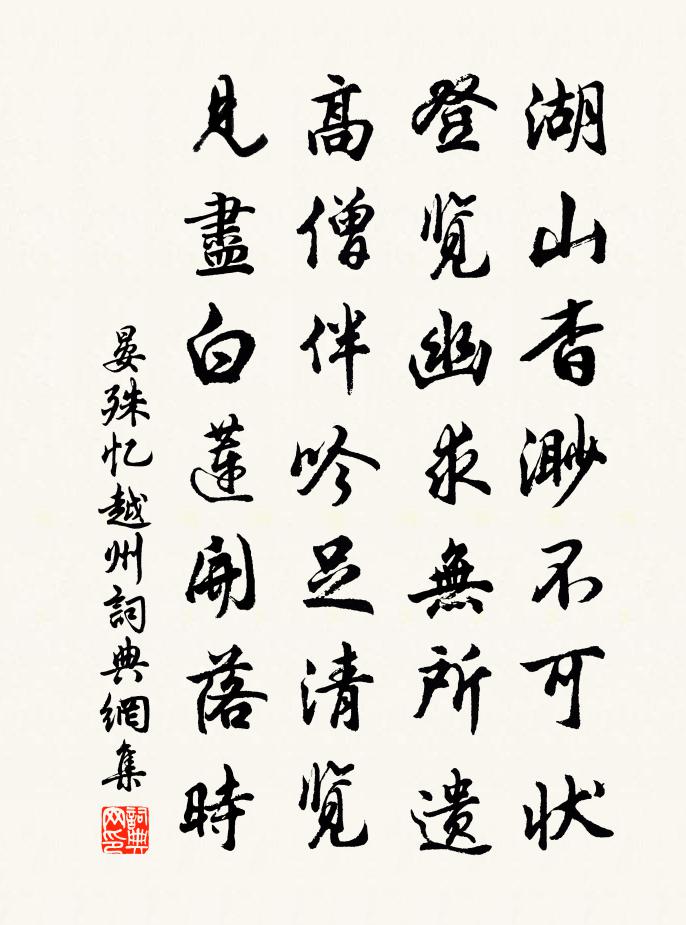 湖山杳渺不可状
登览幽求無所遗
高僧伴吟足清览
見盡白蓮開落時
晏殊忆越州詞典網集
詞典网印